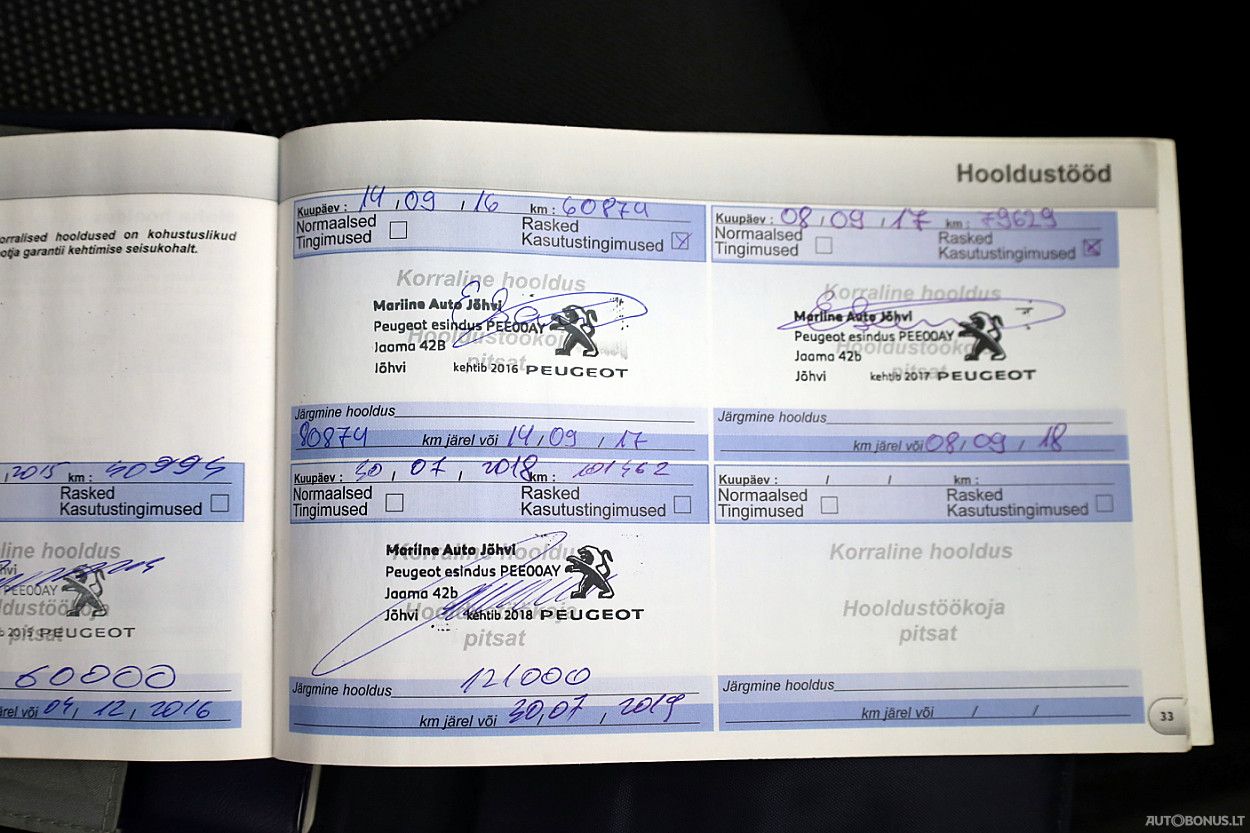 Hooldustööd
orralised hooldused on kohustuslikud
otja garantii kehtimise seisukohalt.
, 2015 km : 40994
Rasked
Kasutustingimused
line hooldus
hvi
PEE00AY
ldustöökoja
b 2015 PEUGEOT
pitsat
60000
järel või 04, 12, 2016
Kuupäev : 14 , 09 , 16 km : 60874
Normaalsed Rasked
Tingimused Kasutustingimused
Korraline hooldus
Mariine Auto Jõhvi
Peugeot esindus PEE00AY
Hooldustöökoja
Jaama 42B
pitsat
Jõhvi kehtib 2016 PEUGEOT
Järgmine hooldus
80874 km järel või 14 , 09 , 17
Kuupäev : 08 , 09 , 17 km : 79629
Normaalsed Rasked
Tingimused Kasutustingimused
Korraline hooldus
Mariine Auto Jõhvi
Peugeot esindus PEE00AY
Hooldustöökoja
Jaama 42b
pitsat
Jõhvi kehtib 2017 PEUGEOT
Järgmine hooldus
km järel või 08 , 09 , 18
Kuupäev : 30 , 07 , 2018 km : 101462
Normaalsed Rasked
Tingimused Kasutustingimused
Korraline hooldus
Mariine Auto Jõhvi
Peugeot esindus PEE00AY
Jaama 42b
Hooldustöökoja
Jõhvi kehtib 2018 PEUGEOT
pitsat
Järgmine hooldus 121000
km järel või 30, 07 , 2019
Kuupäev : / / km :
Normaalsed Rasked
Tingimused Kasutustingimused
Korraline hooldus
Hooldustöökoja
pitsat
Järgmine hooldus
km järel või / /
33
AUTOBONUS.LT